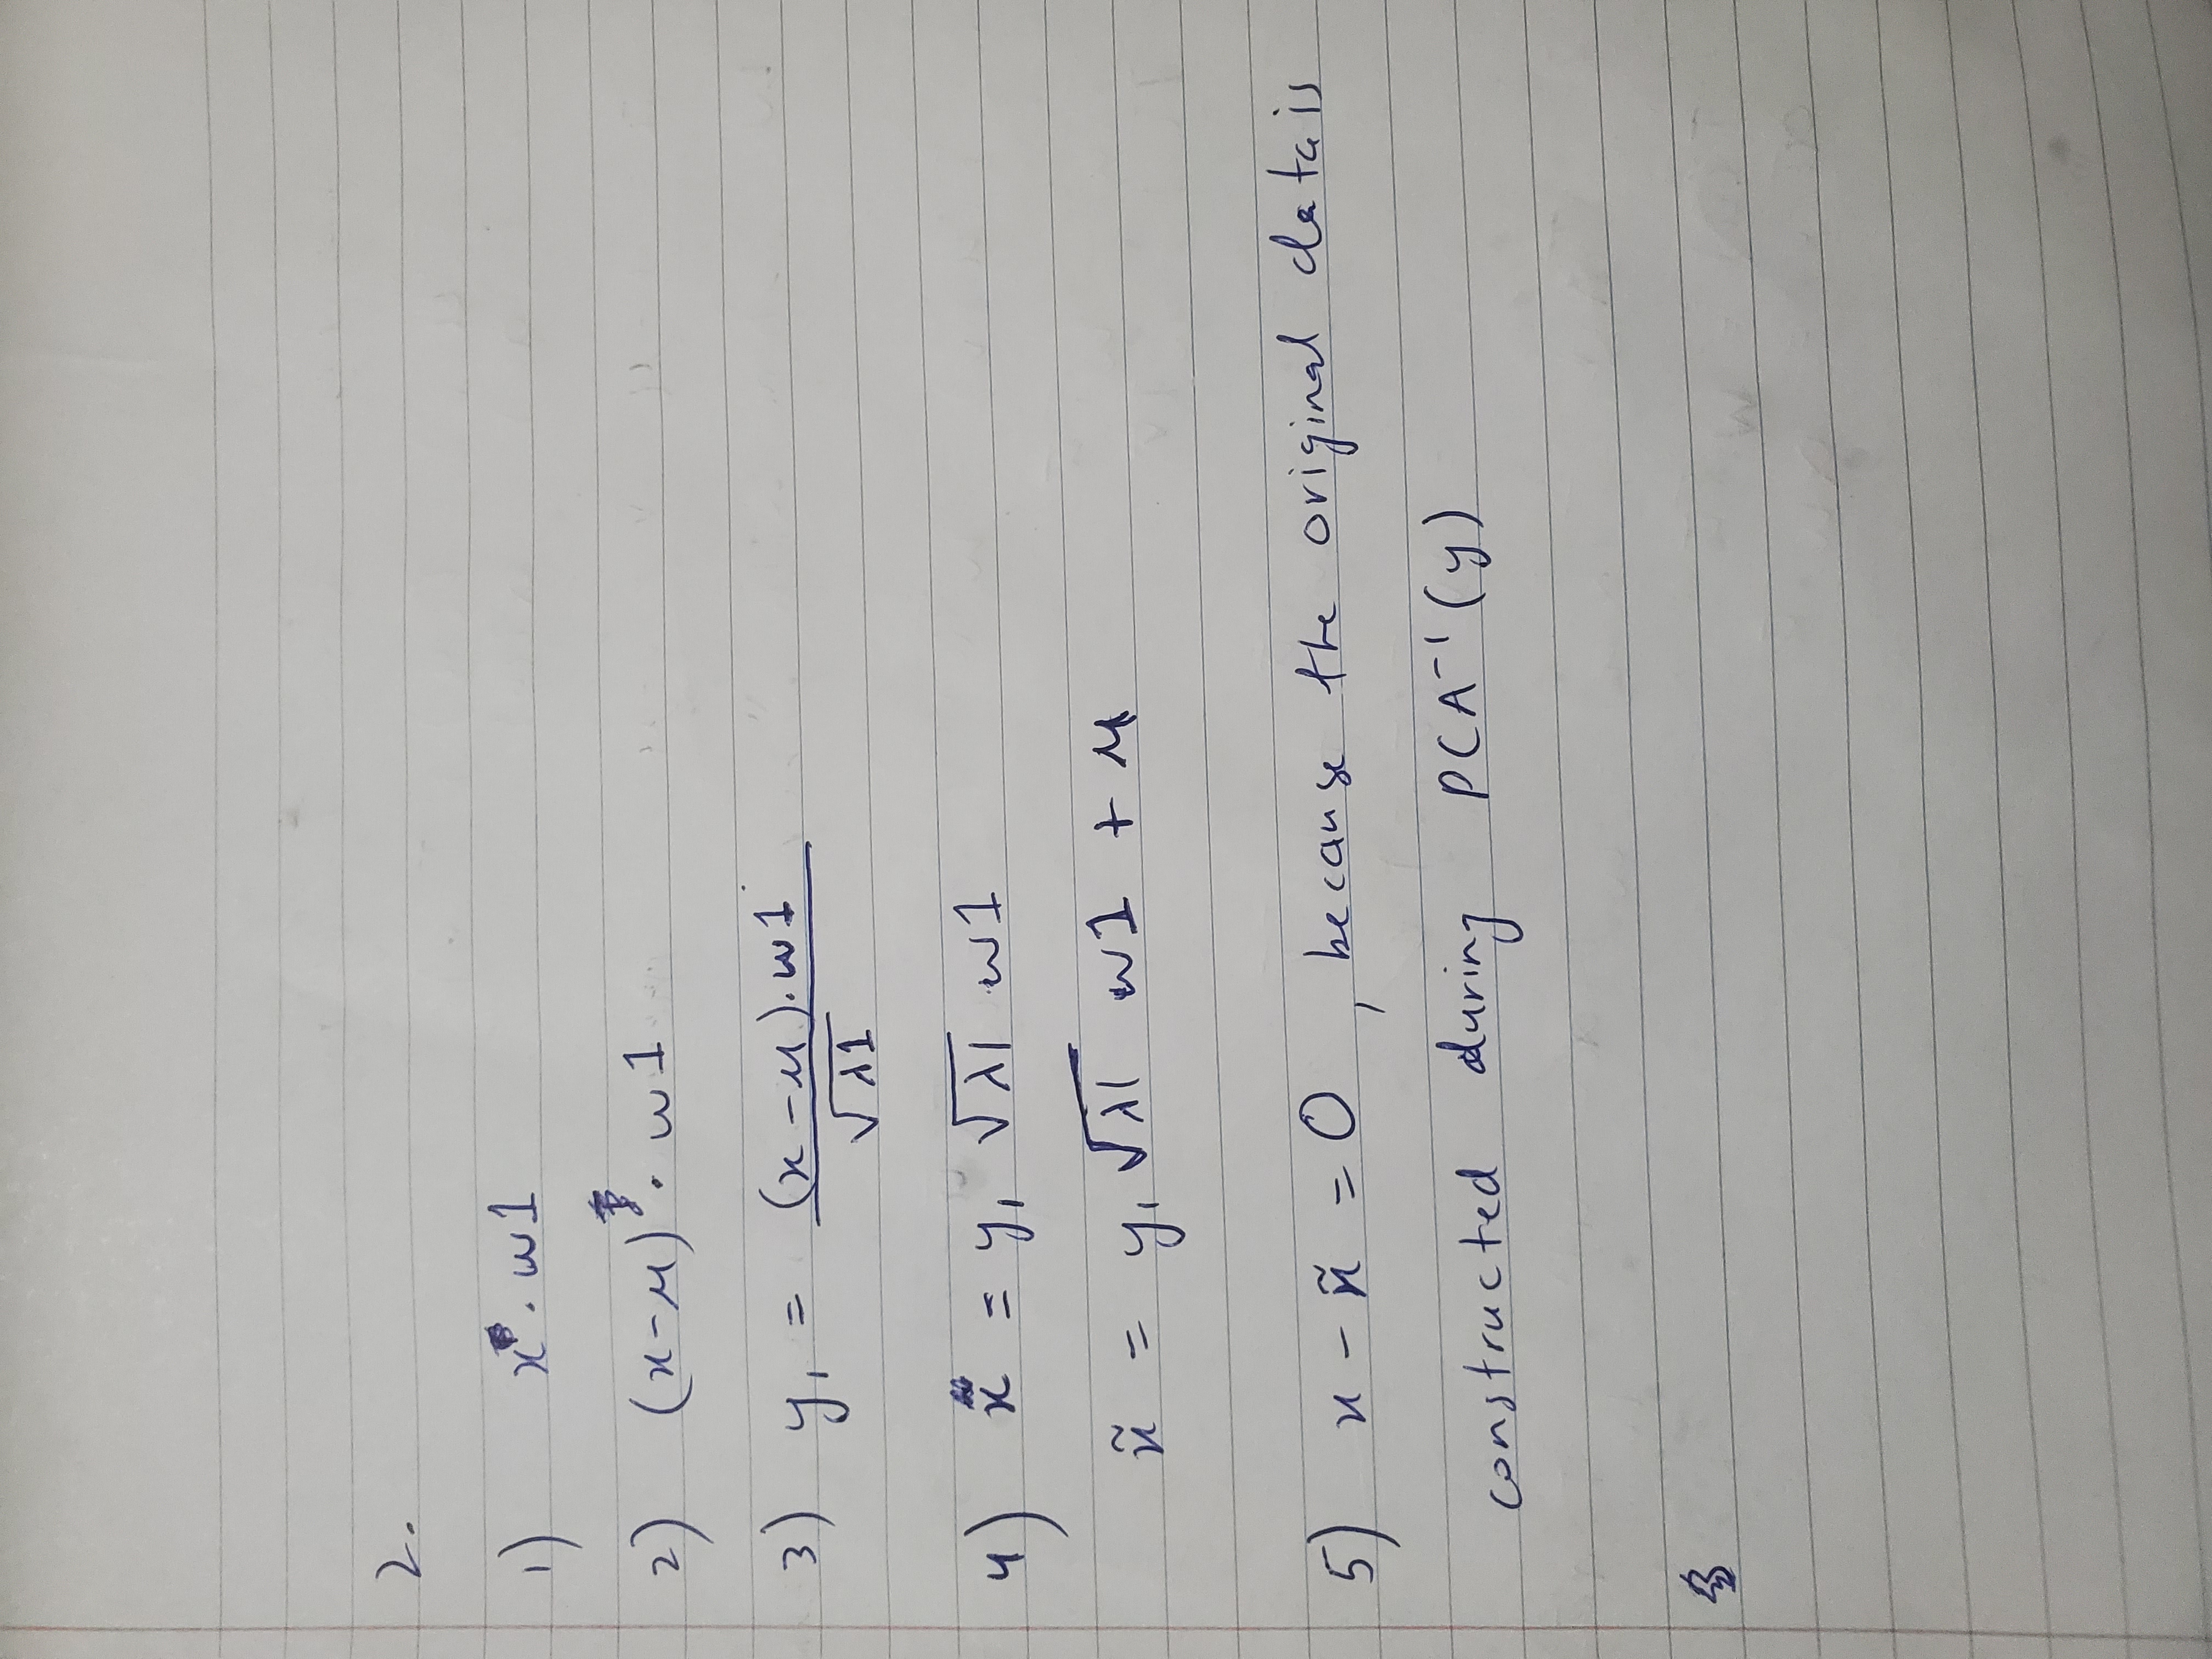 2.
1) x · w1
2) (x-μ) · w1
3) y₁ = (x-μ).w1 / √λ1
4) x = y₁ √λ1 w1
x̃ = y₁ √λ1 w1 + μ
5) x - x̃ = 0 , because the original data is
constructed during PCA⁻¹(y)